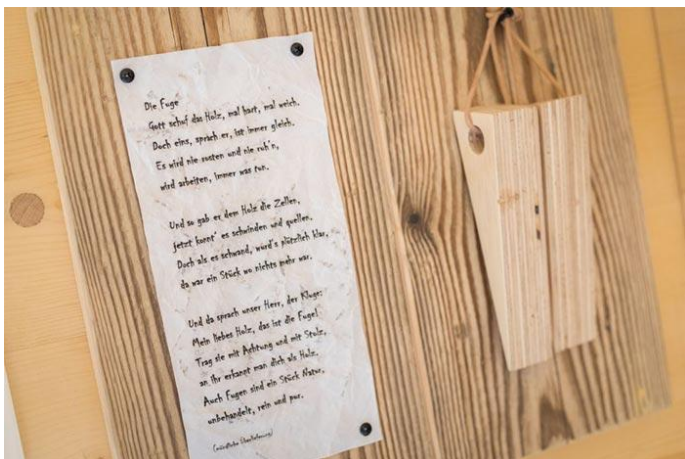 Die Fuge
Gott schuf das Holz, mal hart, mal weich.
Doch eins, sprach er, ist immer gleich.
Es wird nie rosten und nie ruh'n,
wird arbeiten, immer was tun.
Und so gab er dem Holz die Zellen,
jetzt konnt' es schwinden und quellen.
Doch als es schwand, würd's plötzlich klar,
da war ein Stück wo nichts mehr war.
Und da sprach unser Herr, der Kluge:
Mein liebes Holz, das ist die Fuge!
Trag sie mit Achtung und mit Stolz,
an ihr erkannt man dich als Holz.
Auch Fugen sind ein Stück Natur,
unbehandelt, rein und pur.
(mündliche Überlieferung)